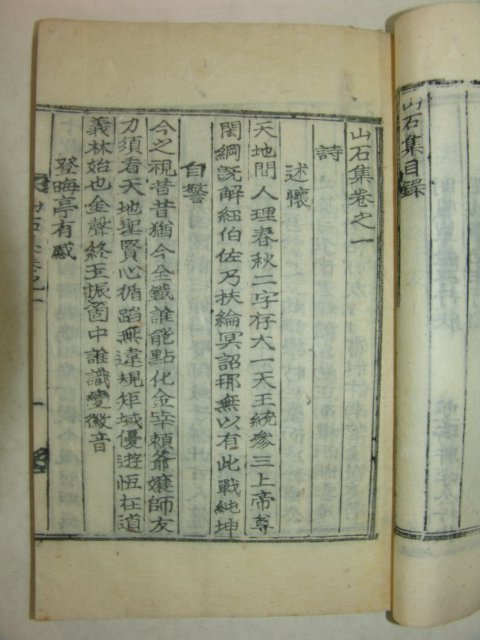 山石集目錄
山石集卷之一
詩
述懷
天地間人理春秋二字存大一天王統參三上帝尊
閏綱旣解紐伯佐乃扶綸冥詔那無以有此戰純坤
自警
今之視昔昔猶今全鐵誰能點化金幸賴爺孃師友
力須看天地聖賢心循蹈無違規矩域優遊恆在道
義林始也金聲終玉振箇中誰識變徽音
登晦亭有感